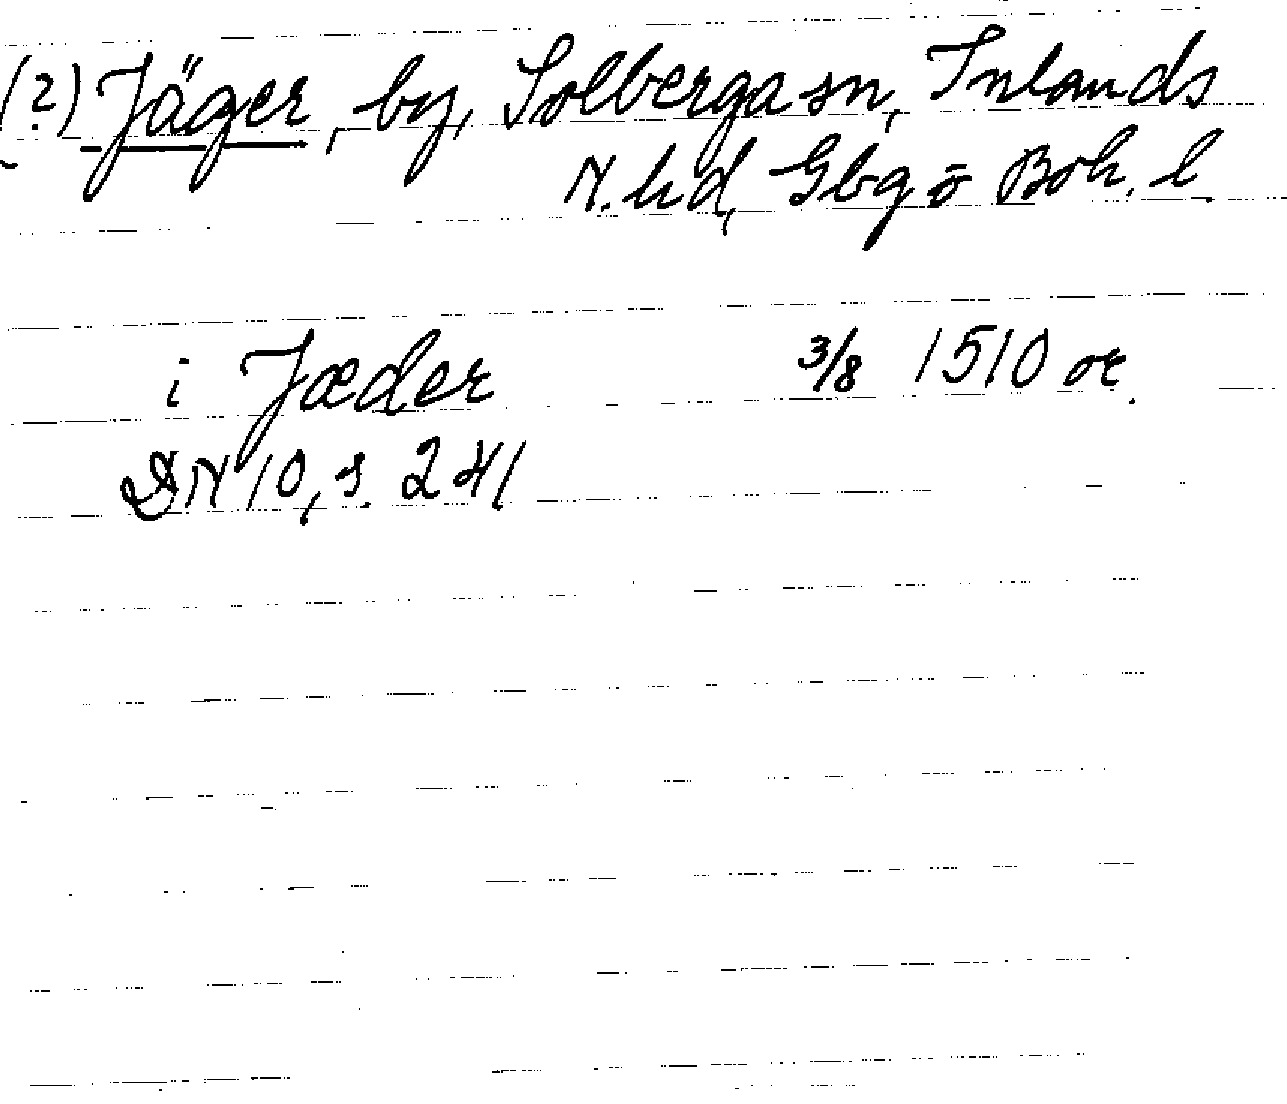 (?) Jäger, by, Solberga sn, Inlands
N. hd, Gbg o Boh. l.
i Jæder 3/8 1510 or.
DN 10, s. 241